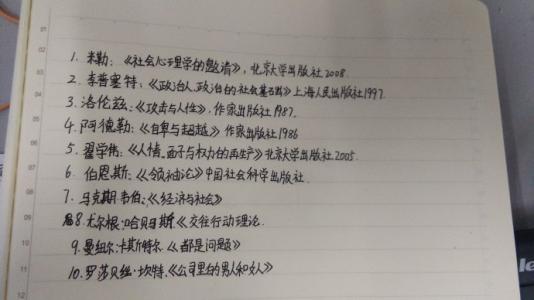 1. 米勒:《社会心理学的邀请》,北京大学出版社2008.
2. 李普塞特:《政治人、政治的社会基础》上海人民出版社1997.
3. 洛伦兹:《攻击与人性》,作家出版社1987.
4. 阿德勒:《自卑与超越》作家出版社1986
5. 翟学伟:《人情、面子与权力的再生产》北京大学出版社.2005.
6. 伯恩斯:《领袖论》中国社会科学出版社.
7. 马克斯·韦伯:《经济与社会》
8. 尤尔根·哈贝马斯《交往行动理论.
9. 曼纽尔·卡斯特尔.《都是问题》
10. 罗莎贝丝·坎特.《公司里的男人和女人》